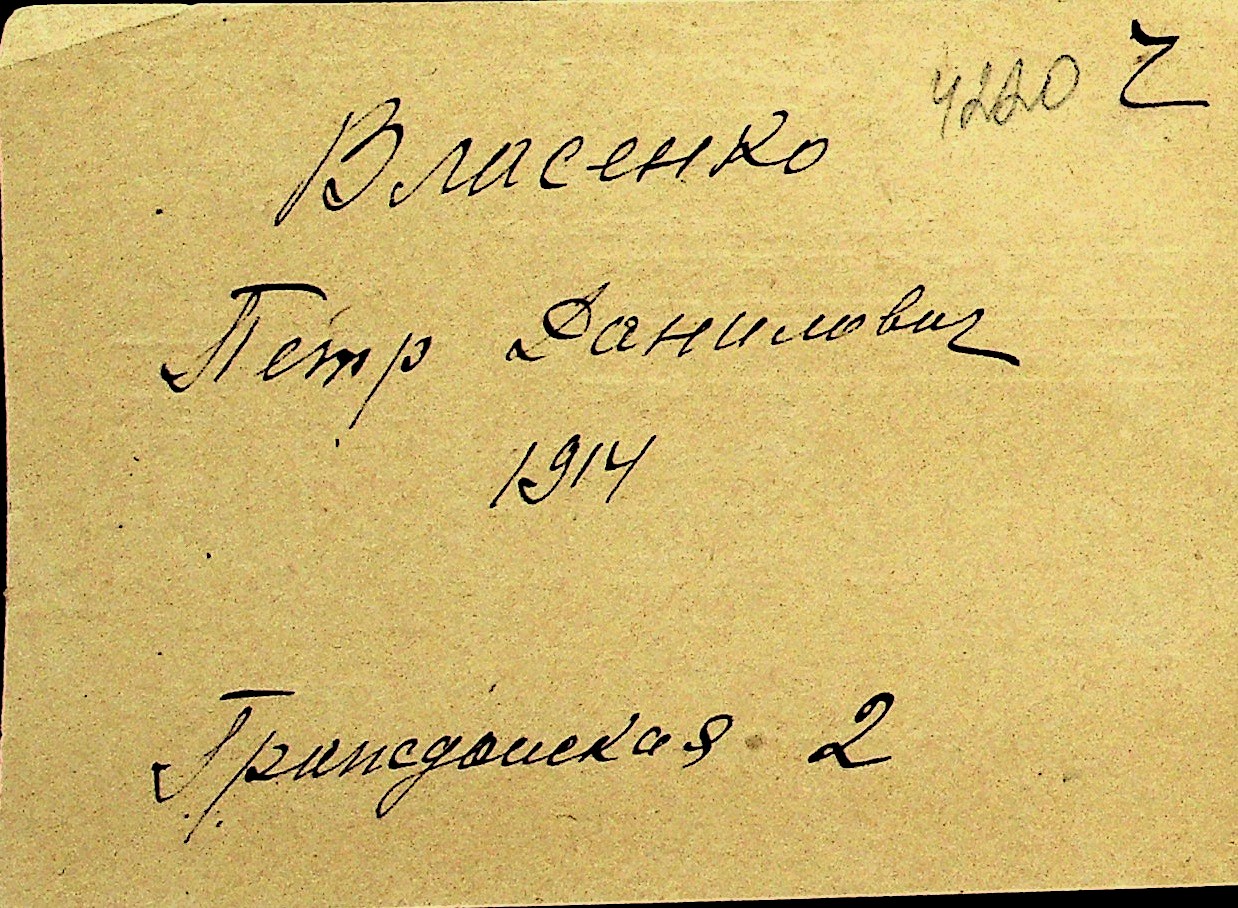 4220 2
Власенко
Пётр Данилович
1914
Гражданская 2